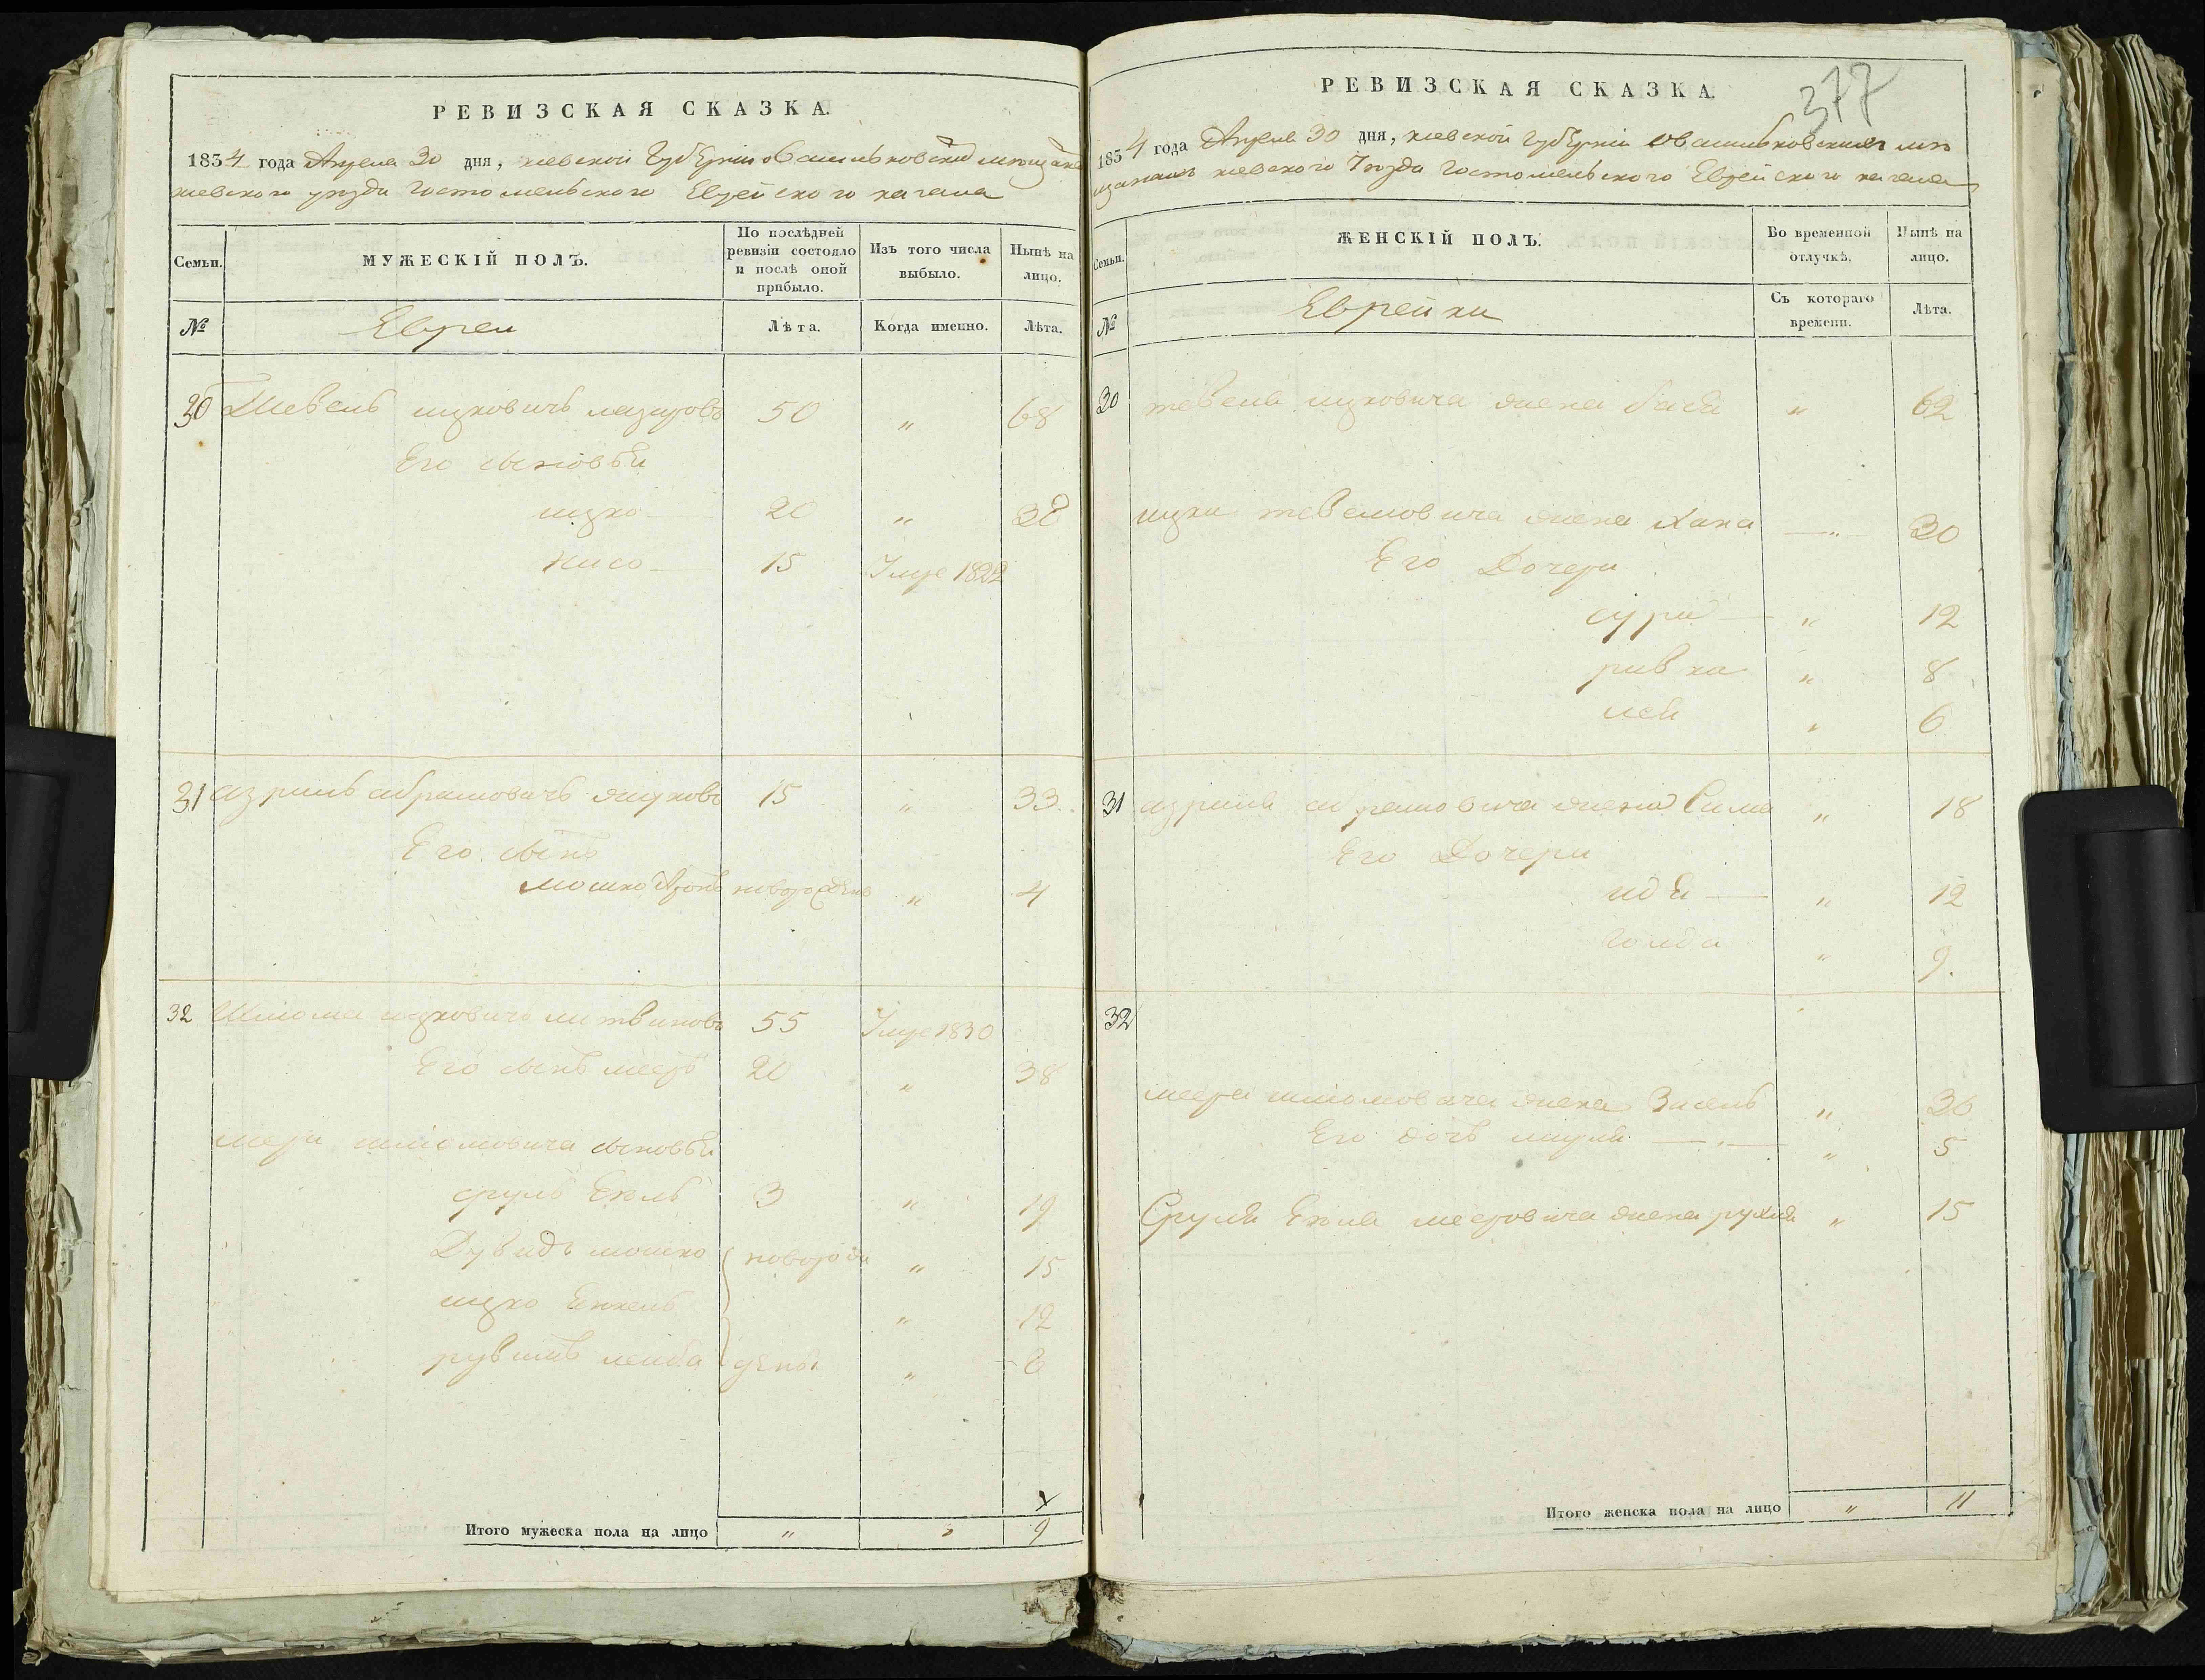 РЕВИЗСКАЯ СКАЗКА.
1834 года Апреля 30 дня, киевской Губернии о Васильковских мещанах
киевского уезда Гостомельского Еврейского кагала
Семьи.
МУЖЕСКІЙ ПОЛЪ.
По послѣдней ревизіи состояло и послѣ оной прибыло.
Изъ того числа выбыло.
Нынѣ на лицо.
№
Евреи
Лѣта.
Когда именно.
Лѣта.
30 Тевель ицковичъ лазаровъ 50 „ 68
Его сыновья
ицко 20 „ 38
нисо 15 Умре 1822
31 азриль абрамовичъ 15 „ 33
Его сынъ
мошко Аронъ новорожденъ „ 4
32 Шліома ицковичъ литвиновъ 55 Умре 1830
Его сынъ мееръ 20 „ 38
меера шліомовича сыновья
сруль Екель 3 „ 19
Дувидъ мошко новорож „ 15
ицко Енкель „ 12
рувинъ лейба дены „ 8
Итого мужеска пола на лицо „ „ 9
РЕВИЗСКАЯ СКАЗКА.
377
1834 года Апреля 30 дня, киевской Губернии о Васильковских ме
щанах киевского Уезда Гостомельского Еврейского кагала
Семьи.
ЖЕНСКІЙ ПОЛЪ.
Во временной отлучкѣ.
Нынѣ на лицо.
№
Еврейки
Съ котораго времени.
Лѣта.
30 тевеля ицковича жена бася „ 62
ицки тевелювича жена Хана „ 30
Его Дочери
сура „ 12
ривка „ 8
лея „ 6
31 азриля абрамовича жена Сима „ 18
Его Дочери
идя „ 12
голда „ 9.
32
меера шліомовича жена Зисель „ 36
Его дочь „ 5
Сруля Екеля мееровича жена рухля „ 15
Итого женска пола на лицо „ 11